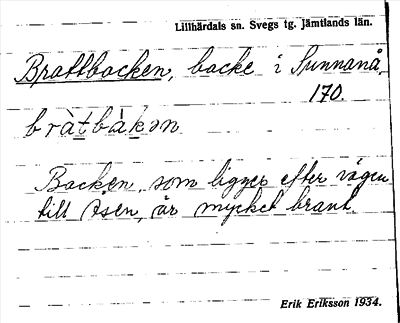 Lillhärdals sn. Svegs tg. Jämtlands län.
Brattbacken, backe i Sunnanå,
170.
bràtbàkən
Backen, som ligger efter vägen
till Åsen, är mycket brant.
Erik Eriksson 1934.